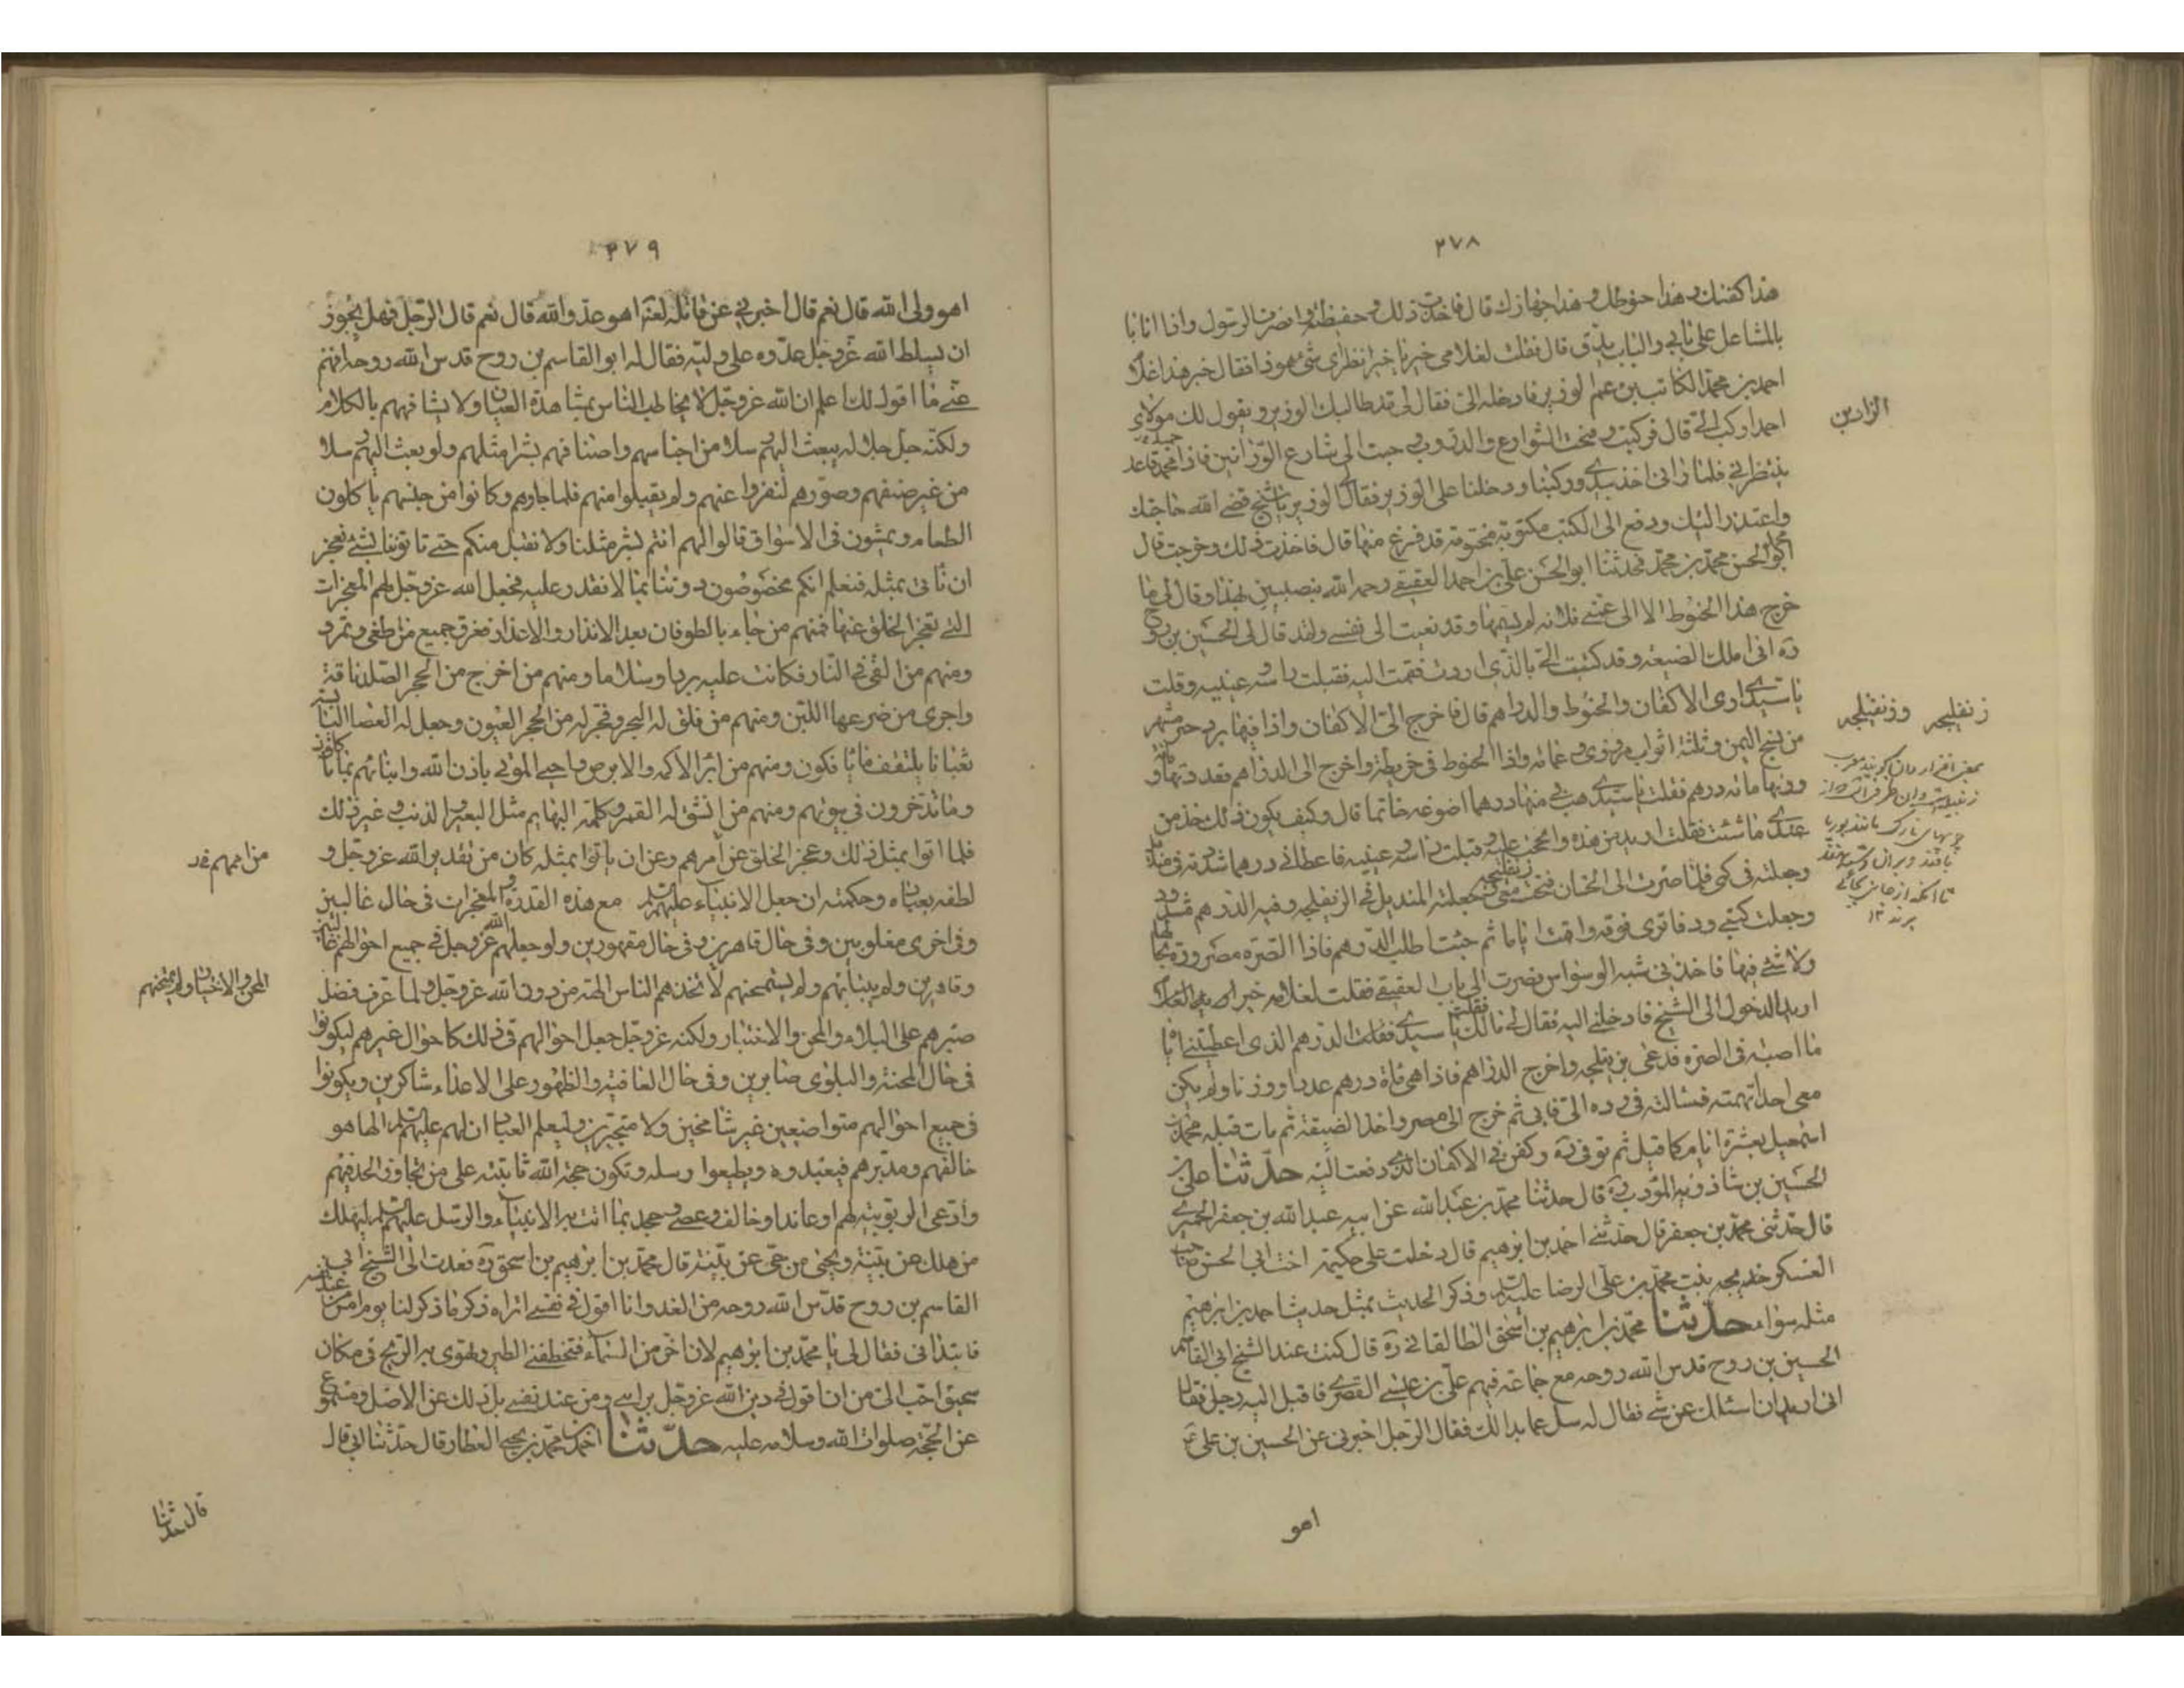 ٢٧٨
هذا كفنك وهذا حنوطك وهذا جهازك قال فاخذت ذلك وحفظته وانصرف الرسول واذا انا
بالمشاعل على بابي والباب يدق قال فقلت لغلامي خير يا خير انظر اي شيء هوذا فقال خير هذا غلام
احمد بن محمد الكاتب ابن عم الوزير فادخله الي فقال لي قد طالبك الوزير ويقول لك مولاي
احمد اركب الي قال فركبت وفتحت الشوارع والدروب وجئت الى شارع الوزانين فاذا بحميد قاعد
ينتظرني فلما راني اخذ بيدي وركبنا ودخلنا على الوزير فقال لي الوزير يا شيخ قضى الله حاجتك
واعتذر اليك ودفع الى الكتب مكتوبة مختومة قد فرغ منها قال فاخذت ذلك وخرجت قال
ابو الحسن محمد بن محمد فحدثنا ابو الحسن علي بن احمد العقيقي رحمه الله بنصيبين بهذا وقال لي ما
خرج هذا الحنوط الا الى عمتي فلانة لم يسمها وقد نعيت الى نفسي ولقد قال لي الحسين بن روح
ره اني املك الضيعة وقد كتبت الي بالذي اردت فقمت اليه فقبلت راسه وعينيه وقلت
يا سيدي ارني الاكفان والحنوط والدراهم قال فاخرج الي الاكفان واذا فيها برد حبرة مسهم
من نسج اليمن وثلثة اثواب مروزي وعمامة واذا الحنوط في خريطة واخرج الى الدراهم فعددتها مائة
ووزنها مائة درهم فقلت يا سيدي هب لي منها درهما اصوغه خاتما قال وكيف يكون ذلك خذ من
عندي ما شئت فقلت اريد من هذه والححت عليه وقبلت راسه وعينيه فاعطاني درهما شددته في منديل
وجعلته في كمي فلما صرت الى الخان فتحت زنفيلجة معي وجعلت المنديل في الزنفيلجة وفيه الدرهم مشدود
وجعلت كتبي ودفاتري فوقه واقمت اياما ثم جئت اطلب الدرهم فاذا الصرة مصرورة بحالها
ولا شيء فيها فاخذني شبه الوسواس فصرت الى باب العقيقي فقلت لغلامه خير
اريد الدخول الى الشيخ فادخلني اليه فقال لي مالك فقلت يا سيدي الدرهم الذي اعطيتني اياه
ما اصبته في الصرة فدعى بزنفيلجة واخرج الدراهم فاذا هي مائة درهم عددا ووزنا ولم يكن
معي احد اتهمته فسالته في رده الي فابى ثم خرج الى مصر واخذ الضيعة ثم مات قبله محمد بن
اسمعيل بعشرة ايام كما قيل ثم توفي ره وكفن في الاكفان الذي دفعت اليه حدثنا علي بن
الحسين بن شاذويه المؤدب ره قال حدثنا محمد بن عبد الله عن ابيه عبد الله بن جعفر الحميري
قال حدثني محمد بن جعفر قال حدثني احمد بن ابرهيم قال دخلت على حكيمة اخت ابي الحسن صاحب
العسكر خديجة بنت محمد بن علي الرضا عليه السلم وذكر الحديث بمثل حديث احمد بن ابرهيم
مثله سواء حدثنا محمد بن ابرهيم بن اسحق الطالقاني ره قال كنت عند الشيخ ابي القاسم
الحسين بن روح قدس الله روحه مع جماعة فيهم علي بن عيسى القصري فاقبل اليه رجل فقال
اني اريد ان اسئلك عن شيء فقال له سل عما بدا لك فقال الرجل اخبرني عن الحسين بن علي ع
اهو
الزرادين
زنفليجه وزنفيلجه
٢٧٩
اهو ولي الله قال نعم قال اخبرني عن قاتله لعنه اهو عدو الله قال نعم قال الرجل فهل يجوز
ان يسلط الله عز وجل عدوه على وليه فقال له ابو القاسم بن روح قدس الله روحه افهم
عني ما اقول لك اعلم ان الله عز وجل لا يخاطب الناس بمشاهدة العيان ولا يشافههم بالكلام
ولكنه جل جلاله يبعث اليهم رسلا من اجناسهم واصنافهم بشرا مثلهم ولو بعث اليهم رسلا
من غير صنفهم وصورهم لنفروا عنهم ولم يقبلوا منهم فلما جاوهم وكانوا من جنسهم ياكلون
الطعام ويمشون في الاسواق قالوا لهم انتم بشر مثلنا ولا نقبل منكم حتى تاتوننا بشيء نعجز
ان ناتي بمثله فنعلم انكم مخصوصون دوننا بما لا نقدر عليه فجعل الله عز وجل لهم المعجزات
التي تعجز الخلق عنها فمنهم من جاء بالطوفان بعد الانذار والاعذار فغرق جميع من طغى وتمرد
ومنهم من القي في النار فكانت عليه بردا وسلاما ومنهم من اخرج من الحجر الصلد ناقة
واجرى من ضرعها اللبن ومنهم من فلق له البحر وفجر له من الحجر العيون وجعل له العصا اليابسة
ثعبانا يلتقف ما يافكون ومنهم من ابرا الاكمه والابرص واحيى الموتى باذن الله وانباهم بما ياكلون
وما يدخرون في بيوتهم ومنهم من انشق له القمر وكلمته البهايم مثل البعير والذئب وغير ذلك
فلما اتوا بمثل ذلك وعجز الخلق عن امرهم وعن ان ياتوا بمثله كان من تقدير الله عز وجل و
لطفه بعباده وحكمته ان جعل الانبياء عليهم السلم مع هذه القدرة والمعجزات في حال غالبين
وفي اخرى مغلوبين وفي حال قاهرين وفي حال مقهورين ولو جعلهم الله عز وجل في جميع احوالهم غالبين
وقاهرين ولم يبتلهم ولم يمتحنهم لاتخذهم الناس الهة من دون الله عز وجل ولما عرف فضل
صبرهم على البلاء والمحن والاختبار ولكنه عز وجل جعل احوالهم في ذلك كاحوال غيرهم ليكونوا
في حال المحنة والبلوى صابرين وفي حال العافية والظهور على الاعداء شاكرين ويكونوا
في جميع احوالهم متواضعين غير شامخين ولا متجبرين وليعلم العباد ان لهم عليهم السلم الها هو
خالقهم ومدبرهم فيعبدوه ويطيعوا رسله وتكون حجة الله ثابتة على من تجاوز الحد فيهم
وادعى الربوبية لهم او عاند او خالف وعصى وجحد بما اتت به الانبياء والرسل عليهم السلم ليهلك
من هلك عن بينة ويحيى من حي عن بينة قال محمد بن ابرهيم بن اسحق ره فعدت الى الشيخ ابي
القاسم بن روح قدس الله روحه من الغد وانا اقول في نفسي اتراه ذكر ما ذكر لنا يوم امس من عند نفسه
فابتداني فقال لي يا محمد بن ابرهيم لان اخر من السماء فتخطفني الطير وتهوي به الريح في مكان
سحيق احب الي من ان اقول في دين الله عز وجل برايي ومن عند نفسي بل ذلك عن الاصل ومسموع
عن الحجة صلوات الله وسلامه عليه حدثنا احمد بن محمد بن يحيى العطار قال حدثنا ابي قال
قال حدثنا